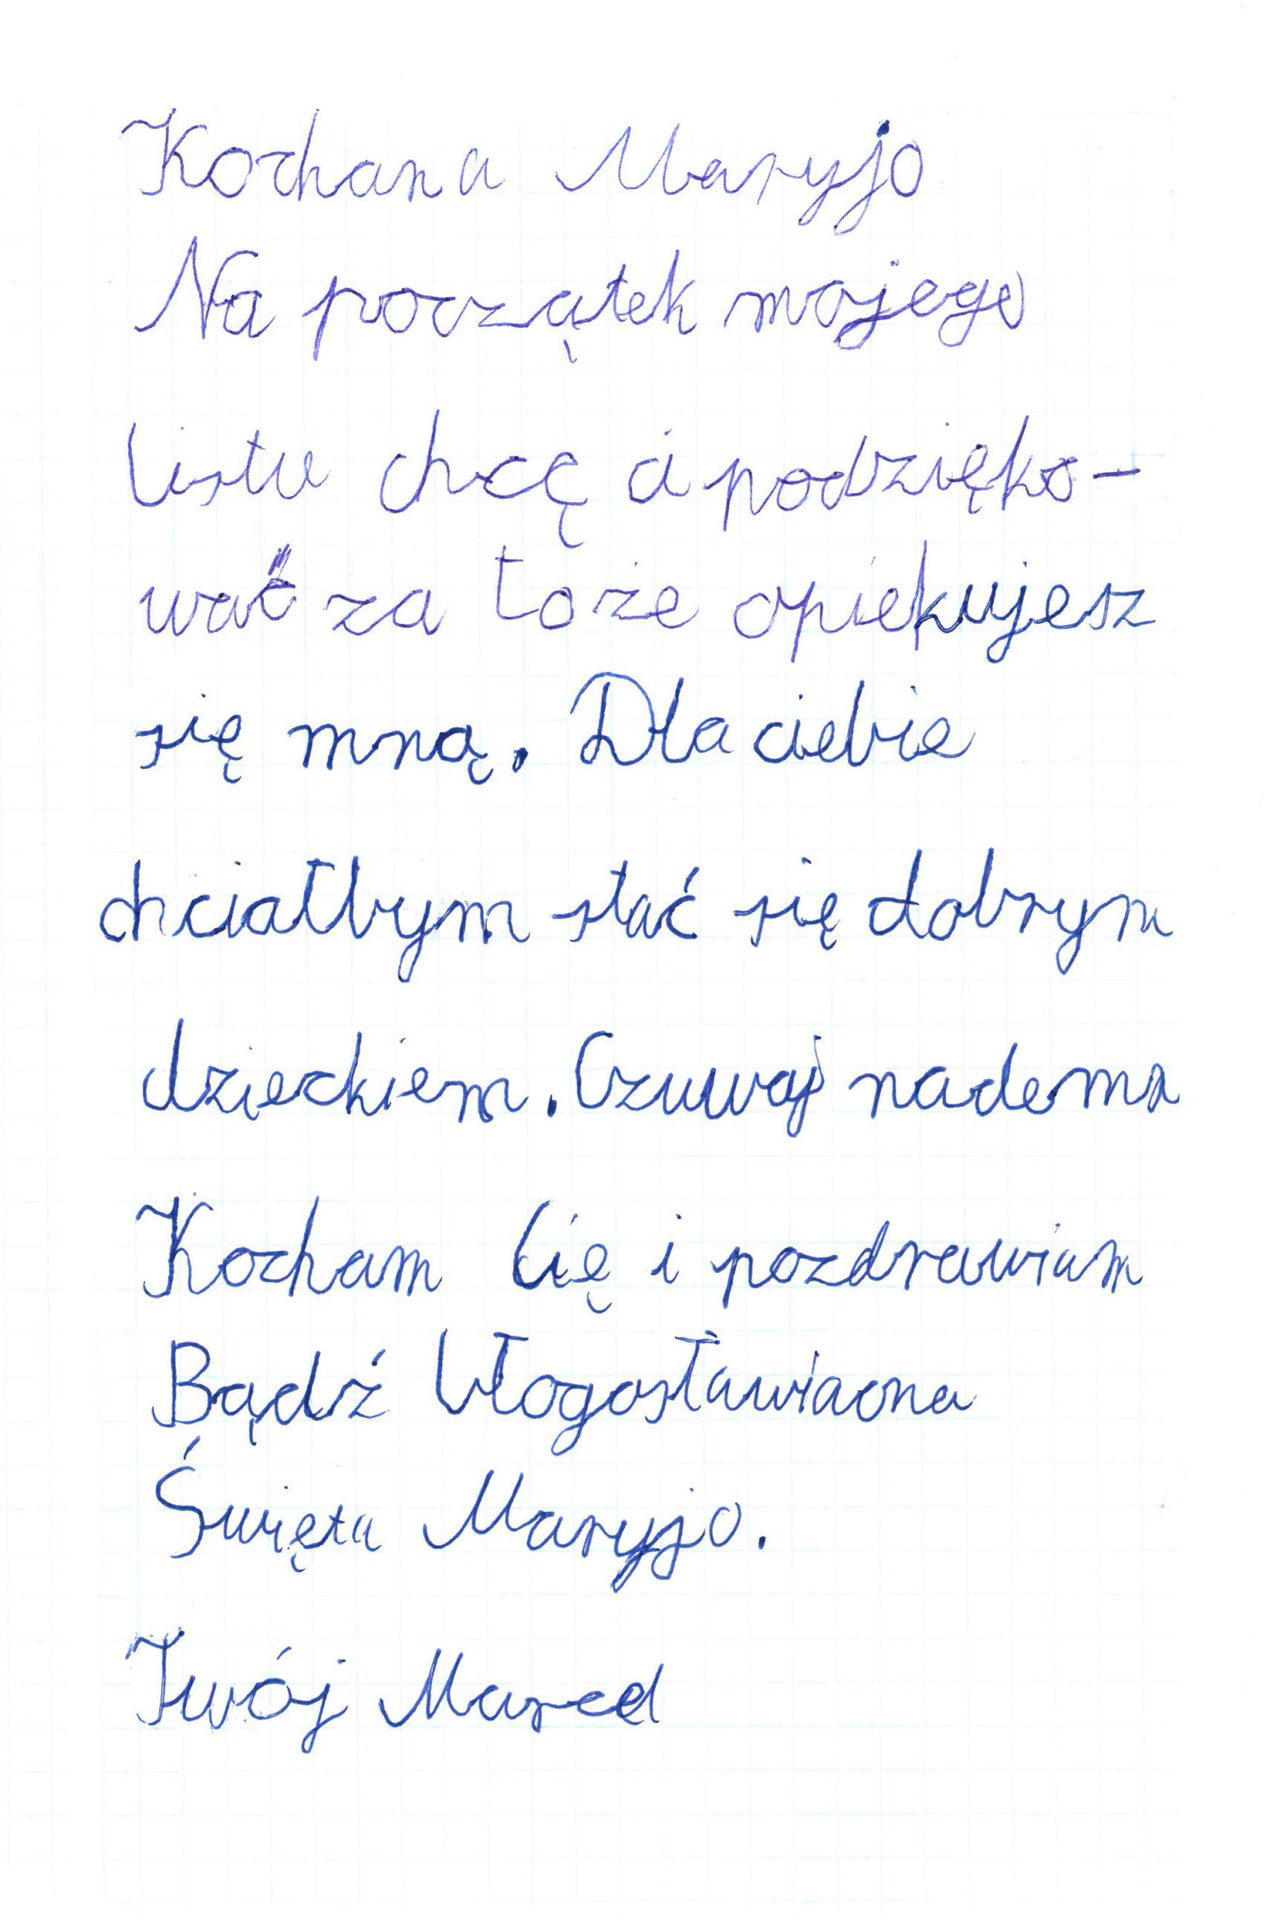 Kochana Maryjo
Na początek mojego
listu chcę ci podzięko-
wać za to że opiekujesz
się mną. Dla ciebie
chciałbym stać się dobrym
dzieckiem. Czuwaj nademn
Kocham Cię i pozdrawiam
Bądź błogosławiaona
Święta Maryjo.
Twój Marcel